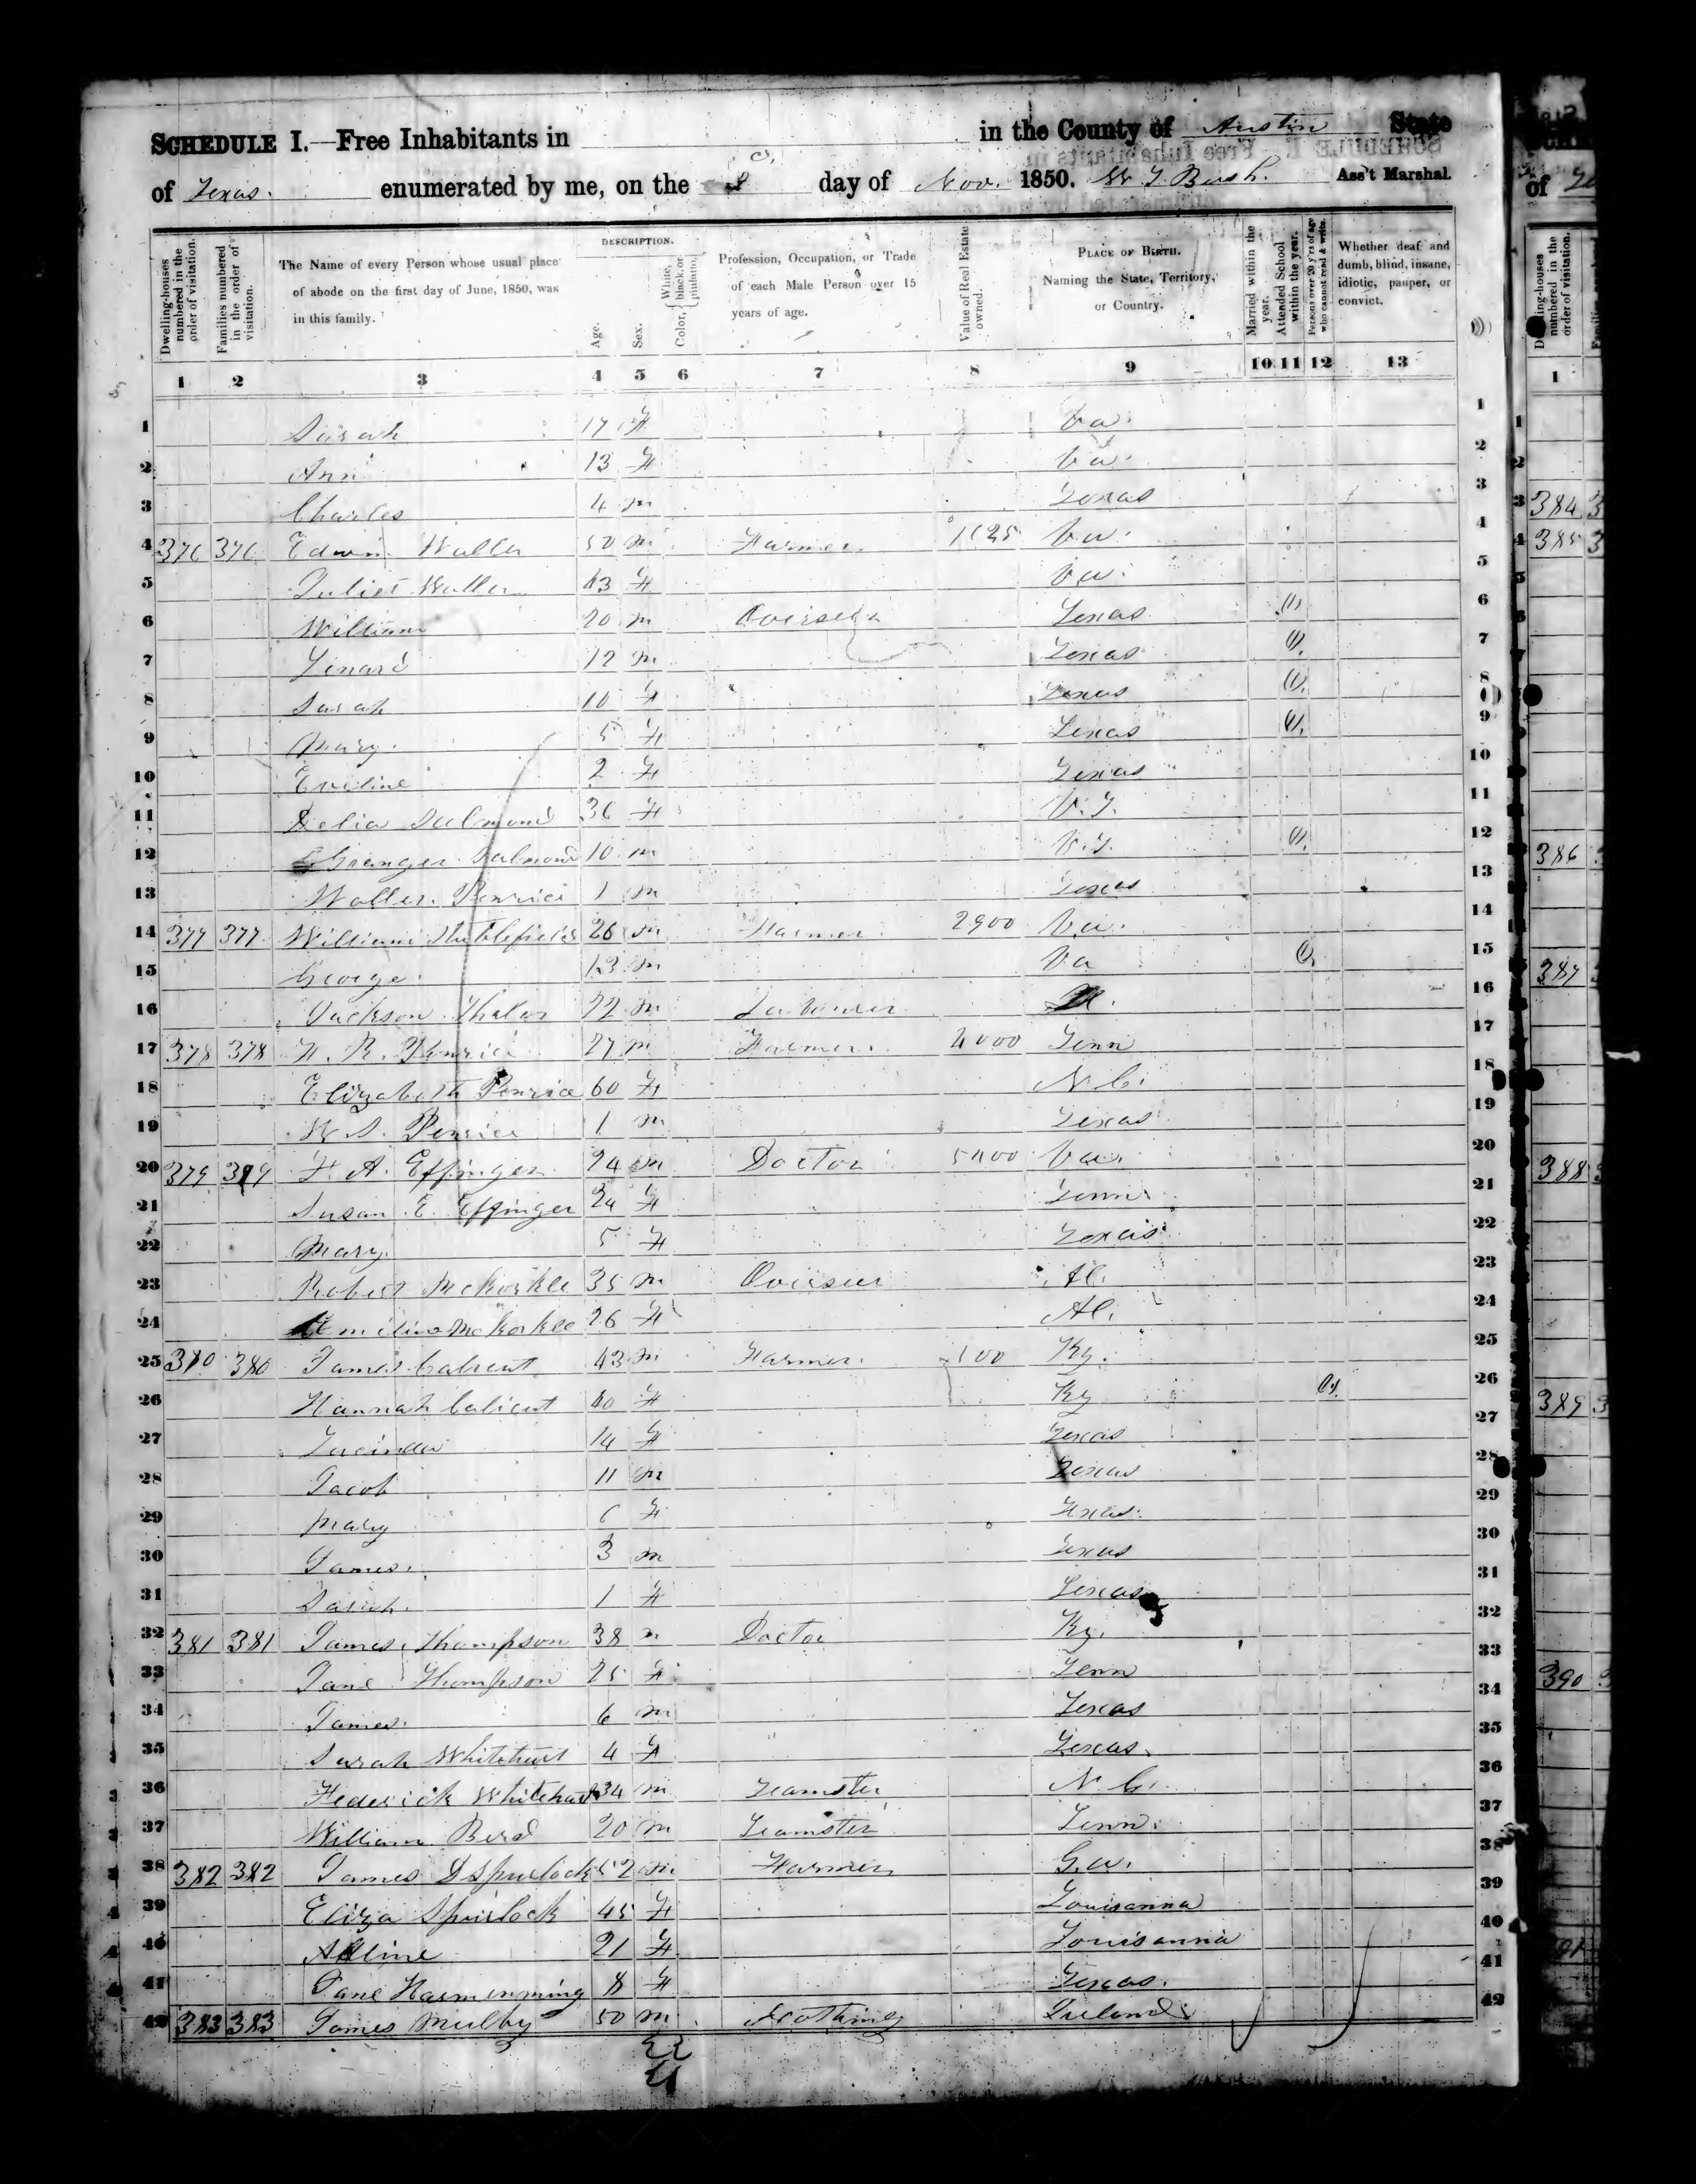 SCHEDULE I.—Free Inhabitants in in the County of Austin State
of Texas. enumerated by me, on the 2 day of Nov. 1850. W J Bush. Ass't Marshal.
Dwelling-houses numbered in the order of visitation.
Families numbered in the order of visitation.
The Name of every Person whose usual place of abode on the first day of June, 1850, was in this family.
DESCRIPTION.
Age.
Sex.
Color, { White, black, or mulatto.
Profession, Occupation, or Trade of each Male Person over 15 years of age.
Value of Real Estate owned.
PLACE OF BIRTH. Naming the State, Territory, or Country.
Married within the year.
Attended School within the year.
Persons over 20 y'rs of age who cannot read & write.
Whether deaf and dumb, blind, insane, idiotic, pauper, or convict.
1 2 3 4 5 6 7 8 9 10 11 12 13
1 Sarah 17 F Va. 1
2 Ann 13 F Va. 2
3 Charles 4 m Texas 3
4 376 376 Edwin Waller 50 m Farmer Va. 4
5 Juliet Waller 43 F Va. 5
6 William 20 m Overseer Texas 6
7 Lenard 12 m Texas 7
8 Sarah 10 F Texas 8
9 Mary. 5 F Texas 9
10 Eveline 2 F Texas 10
11 Delia Salmond 36 F V.T. 11
12 Granger Salmond 10 m V.T. 12
13 Waller Penrice 1 m Texas 13
14 377 377 William Stublefield 26 m Farmer 2900 Va. 14
15 George 13 m Va 15
16 Jackson 22 m Labourer 16
17 378 378 F. R. Penrice 27 m Farmer. 4000 Tenn 17
18 Elizabeth Penrice 60 F N C. 18
19 W S. Penrice 1 m Texas 19
20 379 379 F. A. Effinger 24 m Doctor Va. 20
21 Susan E. Effinger 24 F Tenn. 21
22 Mary. 5 F Texas 22
23 Robert McKorkle 35 m Overseer Al. 23
24 Emiline McKorkle 26 F Al. 24
25 380 380 James Calicut 43 m Farmer. 100 Ky. 25
26 Hannah Calicut 40 F Ky 26
27 Lucinda 14 F Texas 27
28 Jacob 11 m Texas 28
29 Mary 6 F Texas. 29
30 James. 3 m Texas 30
31 Sarah. 1 F Texas 31
32 381 381 James Thompson 38 m Doctor Ky. 32
33 Jane Thompson 25 F Tenn 33
34 James. 6 m Texas 34
35 Sarah Whitehurst 4 F Texas. 35
36 Federick 34 m Teamster N C. 36
37 William Bird 20 m Teamster Tenn. 37
38 382 382 James D Spurlock 52 m Farmer Ga. 38
39 Eliza Spurlock 45 F Louisanna 39
40 Adline 21 F Louisanna 40
41 Jane 8 F Texas. 41
42 383 383 James Mulby 50 m Ireland. 42
of
Dwelling-houses numbered in the order of visitation.
1
384
385
386
387
388
389
390